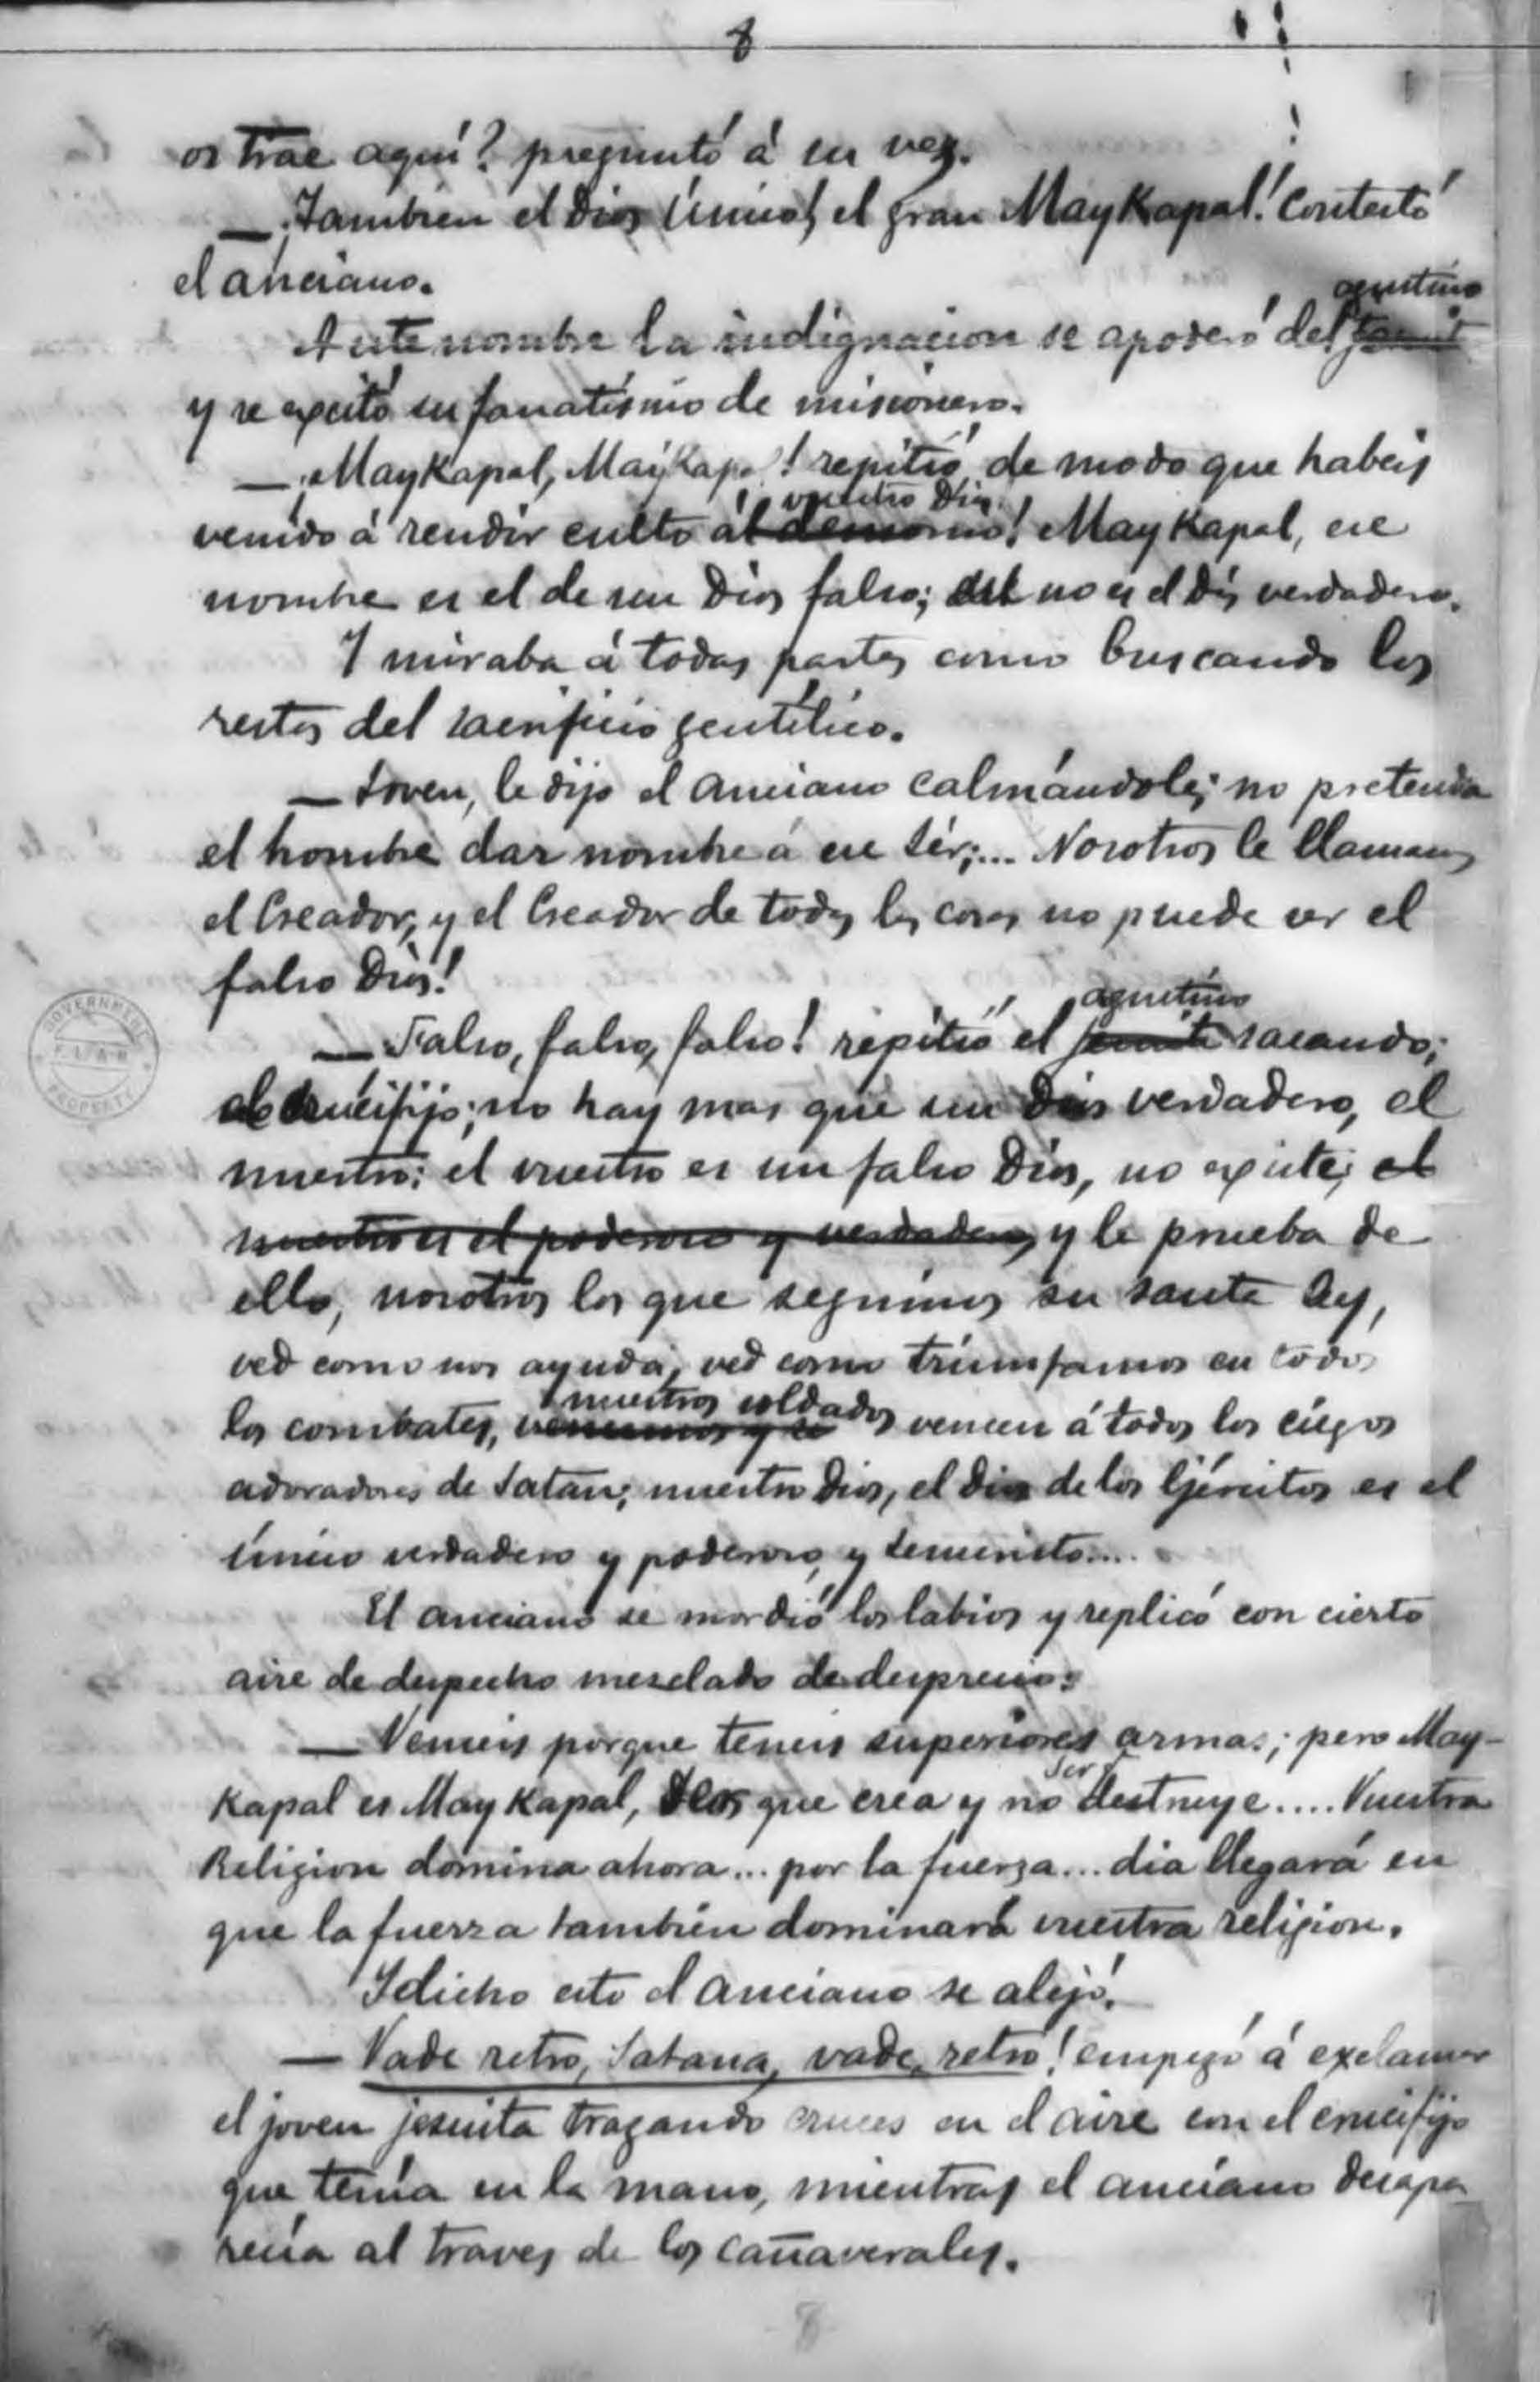 8
os trae aquí? preguntó á su vez.
— ¡Tambien el Dios Único, el gran MayKapal! Contestó
el anciano.
agustino
A este nombre la indignacion se apoderó del jesuita
y se excitó su fanatismo de misionero.
— ¡MayKapal, MayKapal! repitió, de modo que habeis
vuestro Dios
venido á rendir culto ál demonio! MayKapal, ese
nombre es el de un Dios falso; no es el Dios verdadero.
Y miraba á todas partes como buscando los
restos del sacrificio gentílico.
— Joven, le dijo el anciano calmándole; no pretenda
el hombre dar nombre á ese Sér;... Nosotros le llamamos
el Creador, y el Creador de todas las cosas no puede ser el
falso Dios!
agustino
— Falso, falso, falso! repitió el jesuita sacando;
el crucifijo; no hay mas que un Dios verdadero, el
nuestro: el vuestro es un falso Dios, no existe; el
nuestro es el poderoso y verdadero, y la prueba de
ello, nosotros los que seguimos su santa ley,
ved como nos ayuda, ved como triunfamos en todos
nuestros soldados
los combates, vencemos y se vencen á todos los ciegos
adoradores de Satan; nuestro Dios, el Dios de los Ejércitos es el
único verdadero y poderoso, y
El anciano se mordió los labios y replicó con cierto
aire de despecho mezclado de desprecio:
— Venceis porque teneis superiores armas; pero May-
Ser
Kapal es MayKapal, Dios que crea y no destruye..... Vuestra
Religion domina ahora... por la fuerza... dia llegará en
que la fuerza tambien dominará vuestra religion.
Y dicho esto el anciano se alejó.
— Vade retro, Satana, vade, retro! empezó á exclamar
el joven jesuita trazando cruces en el aire con el crucifijo
que tenía en la mano, mientras el anciano desapa
recia al traves de los cañaverales.
8
GOVERNMENT
PROPERTY